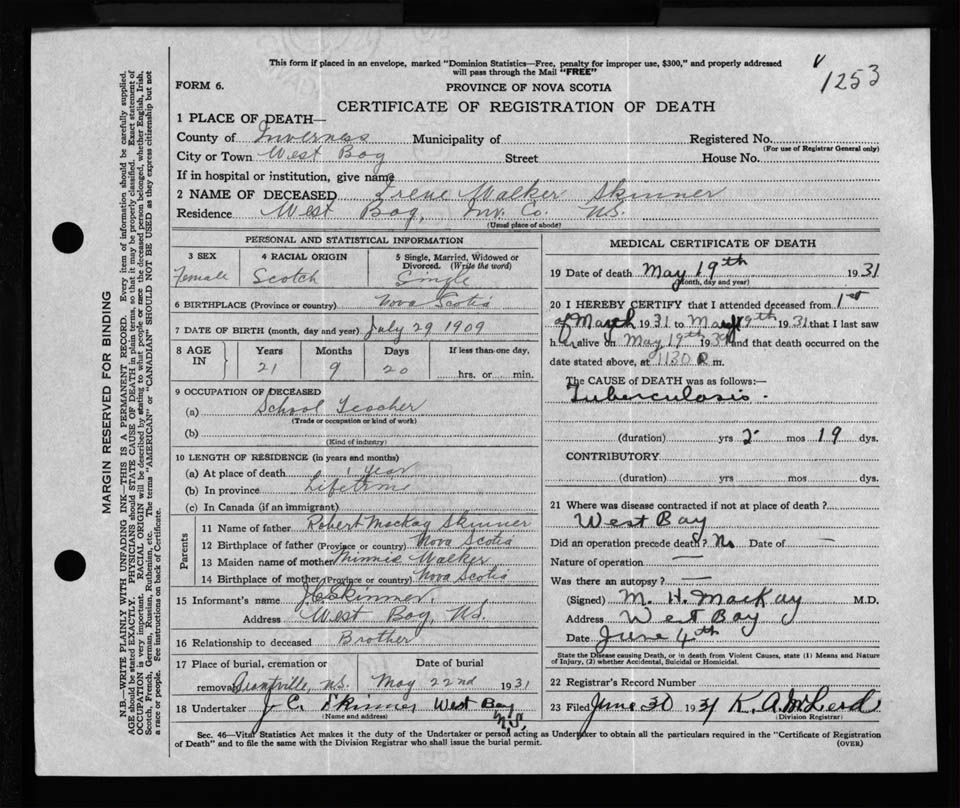 This form if placed in an envelope, marked "Dominion Statistics—Free, penalty for improper use, $300," and properly addressed
will pass through the Mail "FREE"
1253
FORM 6.
PROVINCE OF NOVA SCOTIA
CERTIFICATE OF REGISTRATION OF DEATH
1 PLACE OF DEATH—
County of Inverness Municipality of Registered No.
(For use of Registrar General only)
City or Town West Bay Street House No.
If in hospital or institution, give name
2 NAME OF DECEASED Irene Walker Skinner
Residence West Bay, Inv. Co. N.S.
(Usual place of abode)
PERSONAL AND STATISTICAL INFORMATION
3 SEX 4 RACIAL ORIGIN 5 Single, Married, Widowed or
Divorced. (Write the word)
Female Scotch Single
6 BIRTHPLACE (Province or country) Nova Scotia
7 DATE OF BIRTH (month, day and year) July 29 1909
8 AGE IN Years Months Days If less than one day,
21 9 20 hrs. or min.
9 OCCUPATION OF DECEASED
(a) School Teacher
(Trade or occupation or kind of work)
(b)
(Kind of industry)
10 LENGTH OF RESIDENCE (in years and months)
(a) At place of death 1 year
(b) In province Lifetime
(c) In Canada (if an immigrant)
Parents
11 Name of father Robert Mackay Skinner
12 Birthplace of father (Province or country) Nova Scotia
13 Maiden name of mother Minnie Walker
14 Birthplace of mother (Province or country) Nova Scotia
15 Informant's name J C Skinner
Address West Bay, N.S.
16 Relationship to deceased Brother
17 Place of burial, cremation or Date of burial
removal Grantville, N.S. May 22nd 1931
18 Undertaker J. C. Skinner West Bay N.S.
(Name and address)
MEDICAL CERTIFICATE OF DEATH
19 Date of death May 19th 1931
(Month, day and year)
20 I HEREBY CERTIFY that I attended deceased from 1st
of March 1931 to May 19th 1931 that I last saw
her alive on May 19th 1931 and that death occurred on the
date stated above, at 1130 P. m.
The CAUSE OF DEATH was as follows:—
Tuberculosis.
(duration) yrs 2 mos 19 dys.
CONTRIBUTORY
(duration) yrs. mos. dys.
21 Where was disease contracted if not at place of death?
West Bay
Did an operation precede death? No Date of —
Nature of operation —
Was there an autopsy? —
(Signed) M. H. MacKay M.D.
Address West Bay
Date June 4th
State the Disease causing Death, or in death from Violent Causes, state (1) Means and Nature
of Injury, (2) whether Accidental, Suicidal or Homicidal.
22 Registrar's Record Number
23 Filed June 30 1931 K. A. McLeod
(Division Registrar)
Sec. 46—Vital Statistics Act makes it the duty of the Undertaker or person acting as Undertaker to obtain all the particulars required in the "Certificate of Registration
of Death" and to file the same with the Division Registrar who shall issue the burial permit.
(OVER)
MARGIN RESERVED FOR BINDING
N.B.—WRITE PLAINLY WITH UNFADING INK—THIS IS A PERMANENT RECORD. Every item of information should be carefully supplied.
AGE should be stated EXACTLY. PHYSICIANS should STATE CAUSE OF DEATH in plain terms, so that it may be properly classified. Exact statement of
OCCUPATION is very important. RACIAL ORIGIN will be described by stating to what people or race the deceased person belonged, whether English, Irish,
Scotch, French, German, Russian, Ruthenian, etc. The terms "AMERICAN" or "CANADIAN" SHOULD NOT BE USED as they express citizenship but not
a race or people. See instructions on back of Certificate.